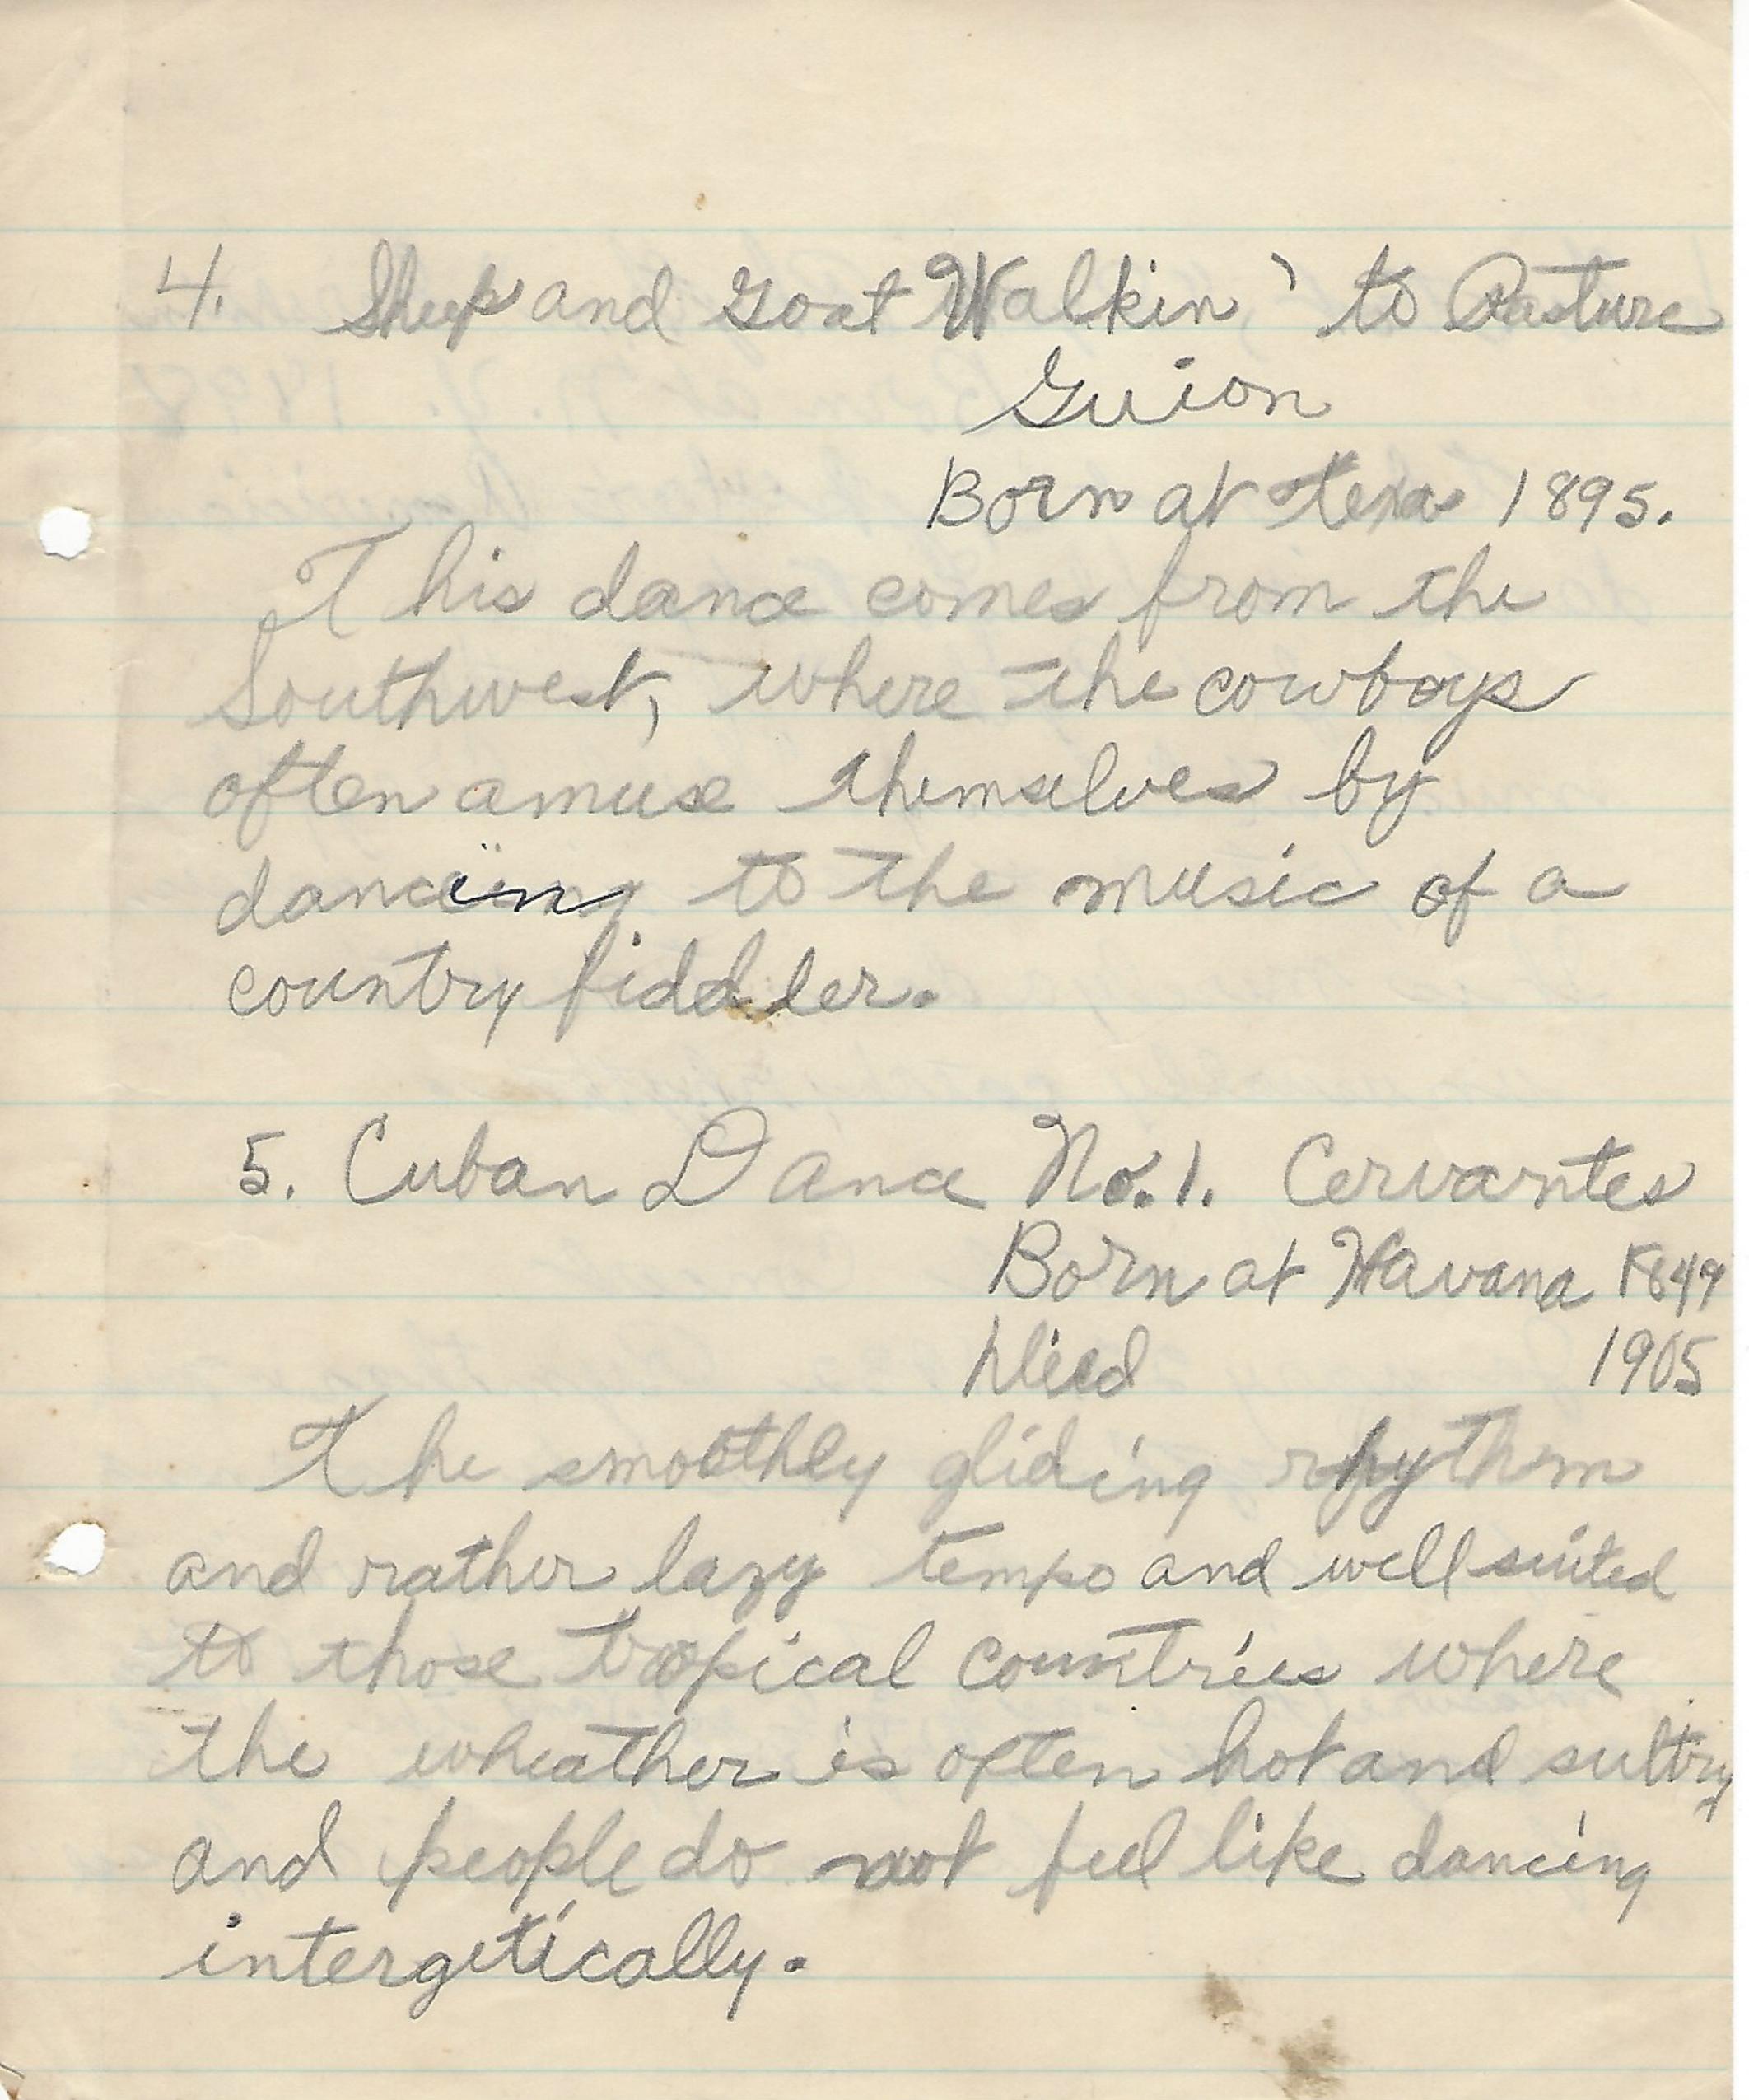 4. Sheep and Goat Walkin' to Pasture
Guion
Born at Texas 1895.
This dance comes from the
Southwest, where the cowboys
often amuse themselves by
dancing to the music of a
country fiddler.
5. Cuban Dance No. 1. Cervantes
Born at Havana 1849
Died 1905
The smoothly gliding rhythm
and rather lazy tempo and well suited
to those tropical countries where
the wheather is often hot and sultry
and people do not feel like dancing
intergetically.